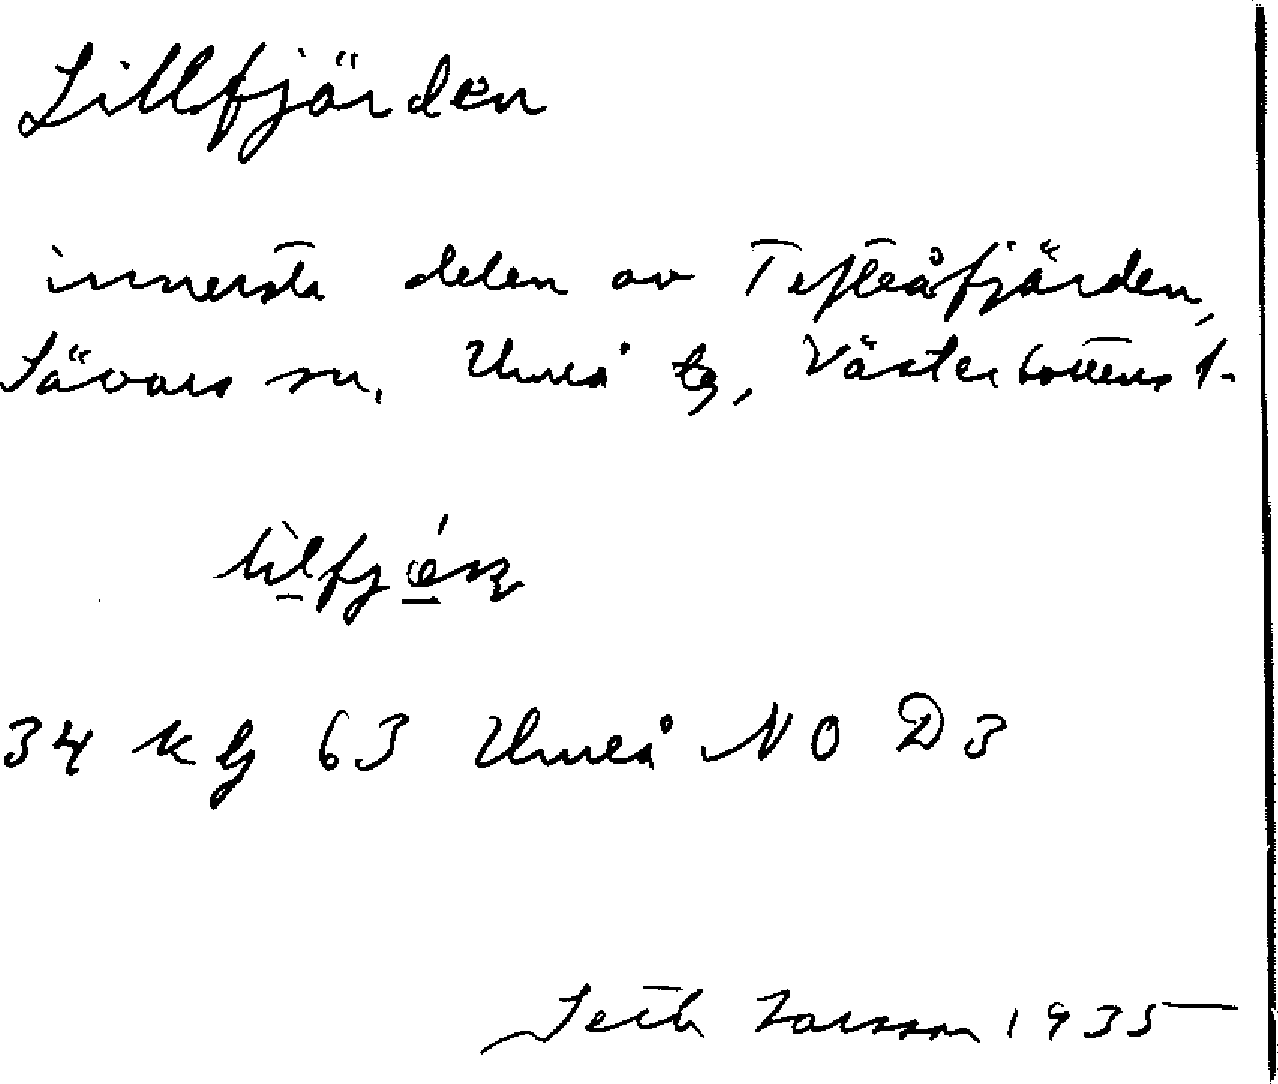 Lillfjärden
innersta delen av Tefteåfjärden,
Sävars sn, Umeå tg, Västerbottens l.
34 kg 63 Umeå NO D3
Seth Larsson 1935